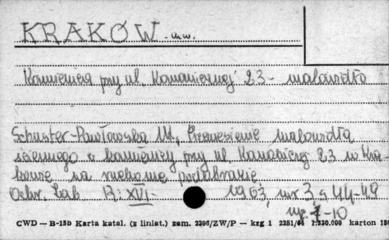 KRAKÓW m.w.
Kamienica przy ul. Kanoniczej 23 - malowidła
Schuster-Pawłowska M., Przeniesienie malowidła
ściennego z kamienicy przy ul. Kanoniczej 23 w Kra-
kowie na ruchome podobrazie
Ochr. Zab. R: XVI 1963, nr 3 s 44-49
CWD — B-13b Karta katal. (z liniat.) zam. 2206/ZW/P — krg 1 2251/64 1.320.000 karton 180